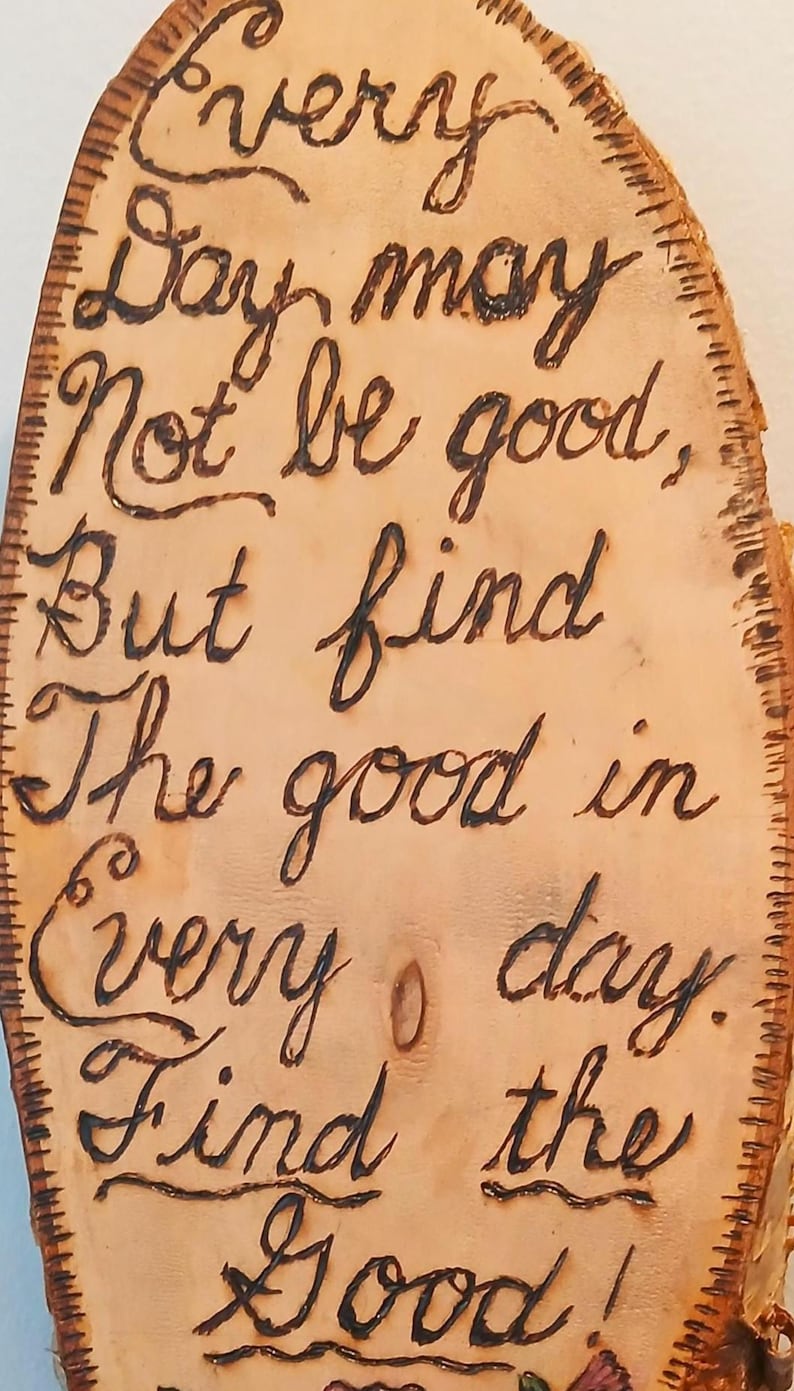 Every
Day may
Not be good,
But find
The good in
Every day.
Find the
Good!